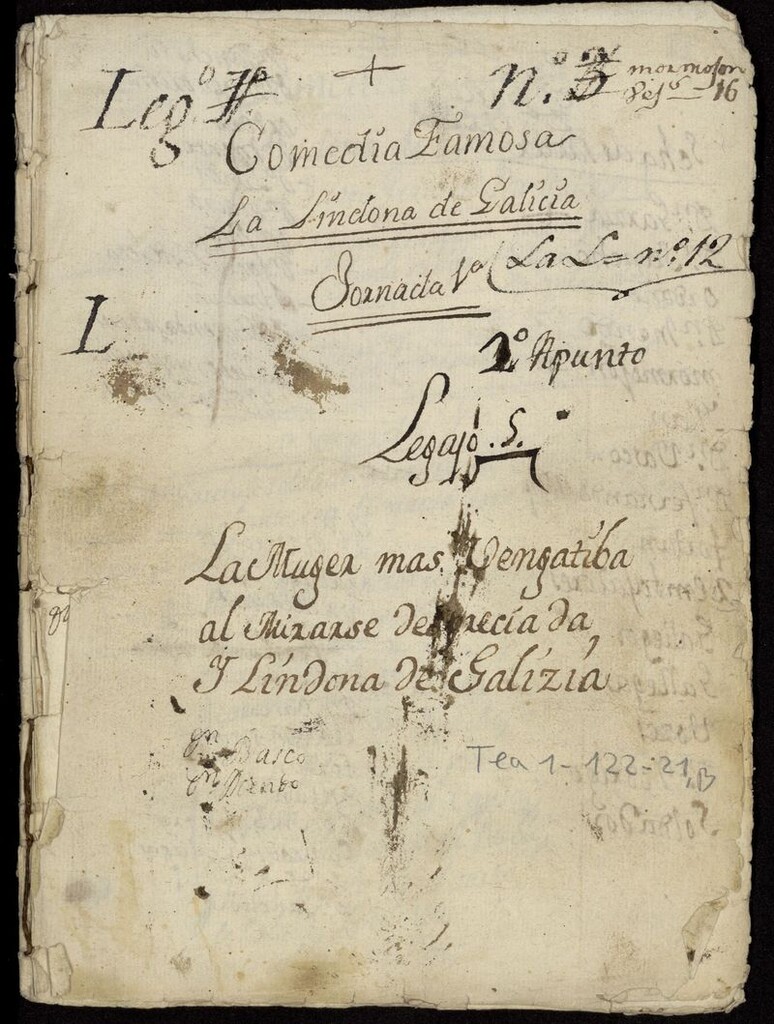 Leg.º +
n.º 3
mormojon
16
Comedia Famosa
La Lindona de Galicia
Jornada 1ª (La L= nº. 12
L
2º Apunto
Legajo. 5.
La Muger mas Vengatiba
al Mirarse despreciada,
Y Lindona de Galizia
Basco
Tea 1-122-21, B